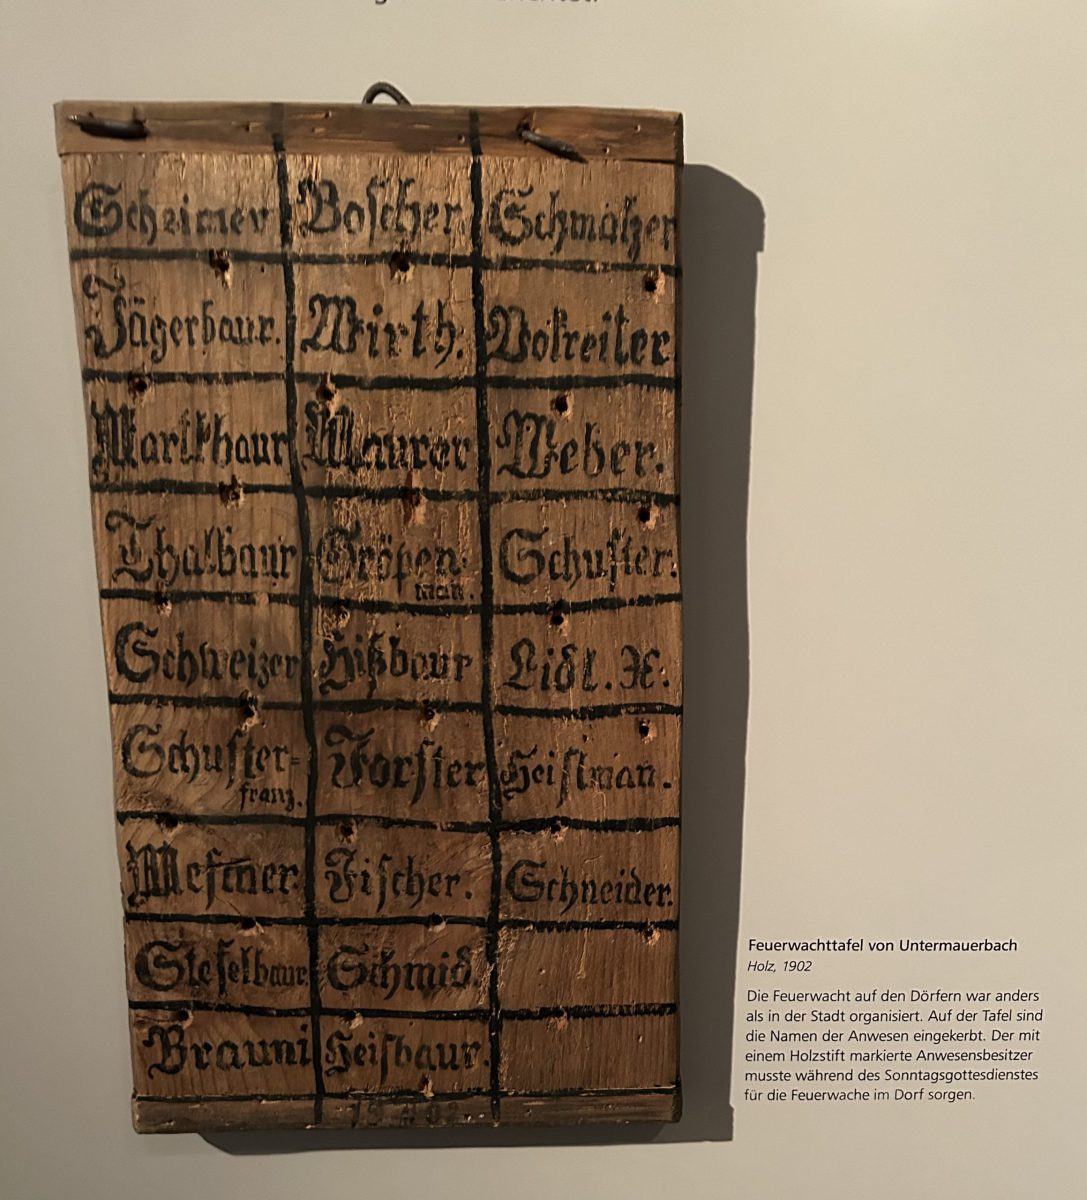 Scheimer Boscher Schmalzer
Jägerbaur. Wirth. Vokreiter.
Markhaur Maurer Weber.
Thalbaur Gröpen-
man.
Schuster.
Schweizer Hißbaur Lidl. X.
Schuster= Forster Heislman.
franz.
Mesmer. Fischer. Schneider.
Stefelbaur. Schmid.
Brauni Heisbaur.
19 02
Feuerwachttafel von Untermauerbach
Holz, 1902
Die Feuerwacht auf den Dörfern war anders
als in der Stadt organisiert. Auf der Tafel sind
die Namen der Anwesen eingekerbt. Der mit
einem Holzstift markierte Anwesensbesitzer
musste während des Sonntagsgottesdienstes
für die Feuerwache im Dorf sorgen.